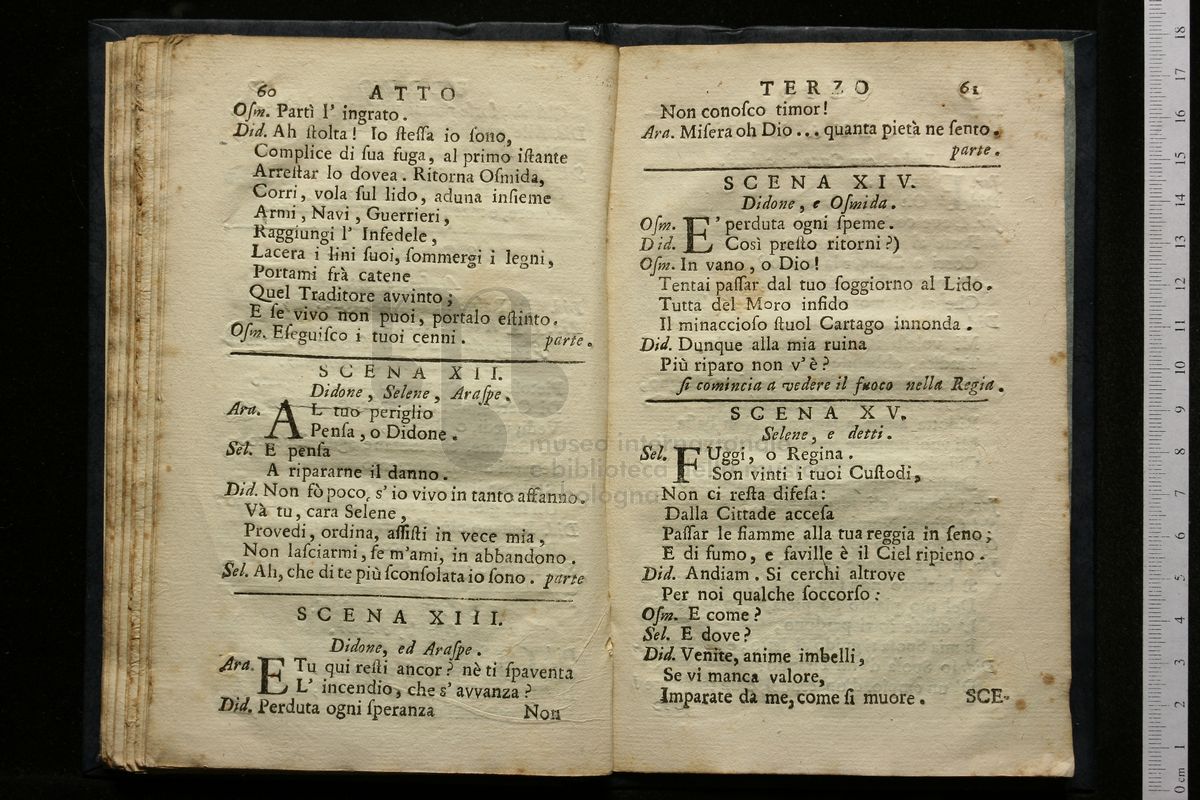 60 ATTO
Oſm. Partì l' ingrato.
Did. Ah ſtolta! Io ſteſſa io ſono,
Complice di ſua fuga, al primo iſtante
Arreſtar lo dovea. Ritorna Oſmida,
Corri, vola ſul lido, aduna inſieme
Armi, Navi, Guerrieri,
Raggiungi l' Infedele,
Lacera i lini ſuoi, ſommergi i legni,
Portami frà catene
Quel Traditore avvinto;
E ſe vivo non puoi, portalo eſtinto.
Oſm. Eſeguiſco i tuoi cenni. parte.
SCENA XII.
Didone, Selene, Araſpe.
Ara. AL tuo periglio
Penſa, o Didone.
Sel. E penſa
A ripararne il danno.
Did. Non fò poco, s' io vivo in tanto affanno.
Và tu, cara Selene,
Provedi, ordina, aſſiſti in vece mia,
Non laſciarmi, ſe m'ami, in abbandono.
Sel. Ah, che di te più ſconſolata io ſono. parte
SCENA XIII.
Didone, ed Araſpe.
Ara. E Tu qui reſti ancor? nè ti ſpaventa
L' incendio, che s' avvanza?
Did. Perduta ogni ſperanza
Non
TERZO 61
Non conoſco timor!
Ara. Miſera oh Dio... quanta pietà ne ſento.
parte.
SCENA XIV.
Didone, e Oſmida.
Oſm. E' perduta ogni ſpeme.
Did. Così preſto ritorni?)
Oſm. In vano, o Dio!
Tentai paſſar dal tuo ſoggiorno al Lido.
Tutta del Moro infido
Il minaccioſo ſtuol Cartago innonda.
Did. Dunque alla mia ruina
Più riparo non v'è?
ſi comincia a vedere il fuoco nella Regia.
SCENA XV.
Selene, e detti.
Sel. FUggi, o Regina.
Son vinti i tuoi Cuſtodi,
Non ci reſta difeſa:
Dalla Cittade acceſa
Paſſar le fiamme alla tua reggia in ſeno;
E di fumo, e faville è il Ciel ripieno.
Did. Andiam. Si cerchi altrove
Per noi qualche ſoccorſo:
Oſm. E come?
Sel. E dove?
Did. Venite, anime imbelli,
Se vi manca valore,
Imparate da me, come ſi muore. SCE-
museo internazionale
e biblioteca della musica
di bologna
18
17
16
15
14
13
12
11
10
9
8
7
6
5
4
3
2
1
0 cm